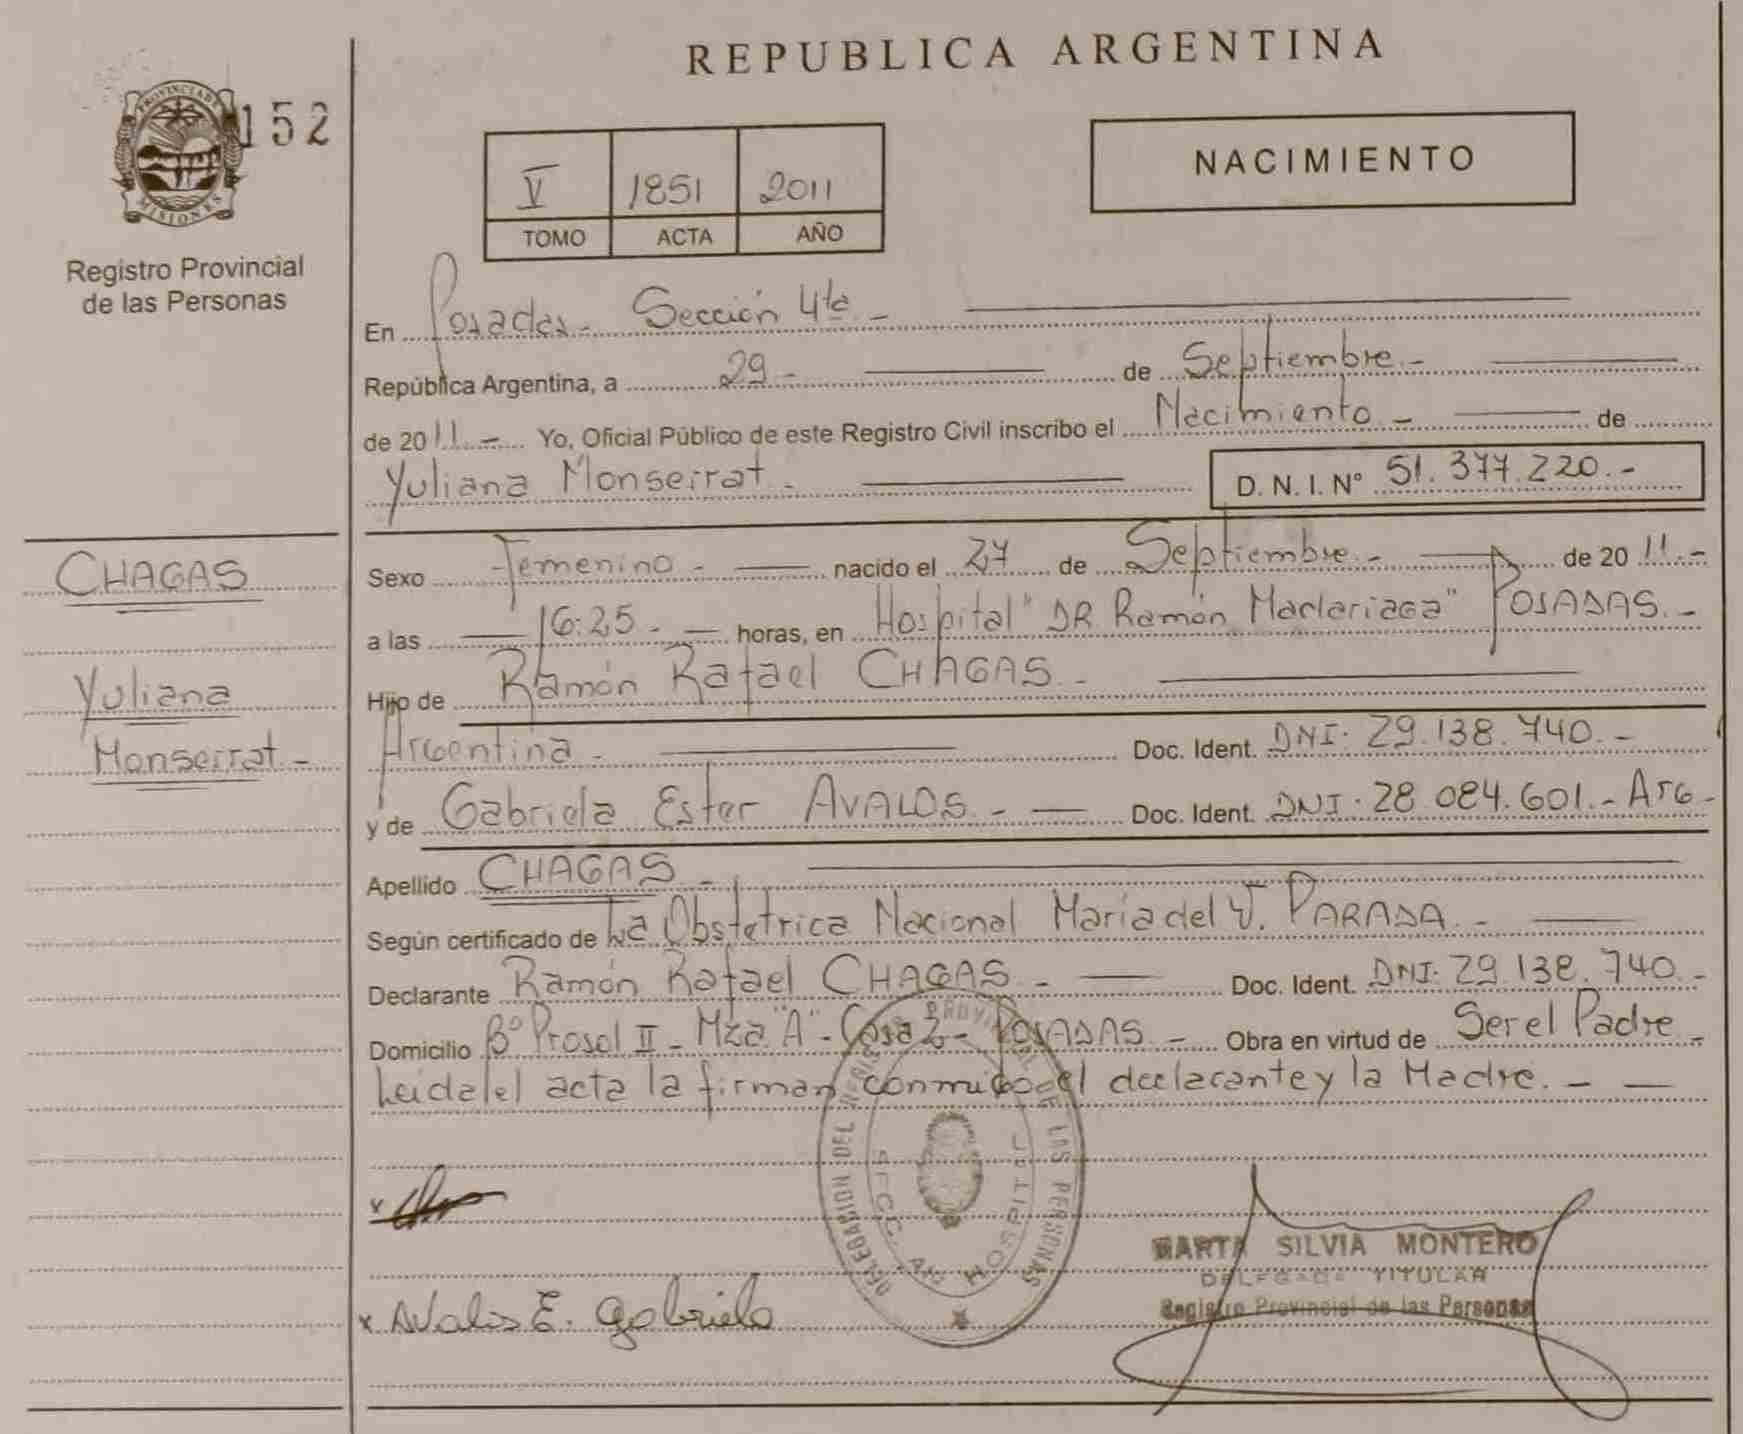 REPUBLICA ARGENTINA
PROVINCIA DE
MISIONES
152
Registro Provincial
de las Personas
V 1851 2011
TOMO ACTA AÑO
NACIMIENTO
En Posadas - Sección 4ta -
República Argentina, a 29 - de Septiembre. -
de 2011. - Yo, Oficial Público de este Registro Civil inscribo el Nacimiento - de
Yuliana Monserrat - D. N. I. N° 51.377.220. -
CHAGAS
Yuliana
Monserrat. -
Sexo Femenino - nacido el 27 de Septiembre. - de 2011. -
a las 16:25 - horas, en Hospital "DR Ramón Madariaga" POSADAS. -
Hijo de Ramón Rafael CHAGAS. -
Argentina - Doc. Ident. DNI. 29.138.740. -
y de Gabriela Ester AVALOS. - Doc. Ident. DNI. 28.084.601. - Arg -
Apellido CHAGAS. -
Según certificado de La Obstetrica Nacional María del V. PARADA. -
Declarante Ramón Rafael CHAGAS - Doc. Ident. DNI. 29.138.740. -
Domicilio B° Prosol II - Mza "A" - Casa 2 - POSADAS - Obra en virtud de Ser el Padre -
Leida el acta la firman conmigo el declarante y la Madre. -
DELEGACION DEL REGISTRO PROVINCIAL DE LAS PERSONAS
SECC. 4a HOSPITAL
MARTA SILVIA MONTERO
DELEGADA TITULAR
Registro Provincial de las Personas
x
x Avalos E. Gabriela